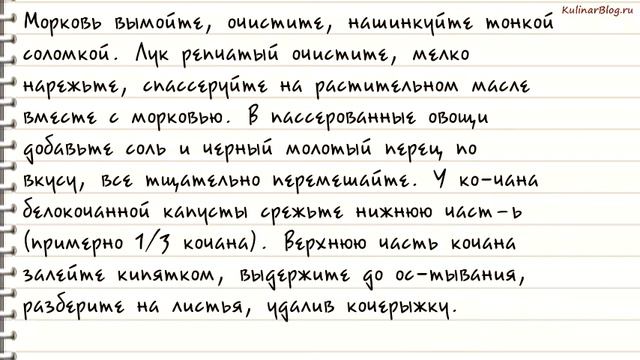 KulinarBlog.ru
Морковь вымойте, очистите, нашинкуйте тонкой
соломкой. Лук репчатый очистите, мелко
нарежьте, спассеруйте на растительном масле
вместе с морковью. В пассерованные овощи
добавьте соль и черный молотый перец по
вкусу, все тщательно перемешайте. У ко-чана
белокочанной капусты срежьте нижнюю част-ь
(примерно 1/3 кочана). Верхнюю часть кочана
залейте кипятком, выдержите до ос-тывания,
разберите на листья, удалив кочерыжку.